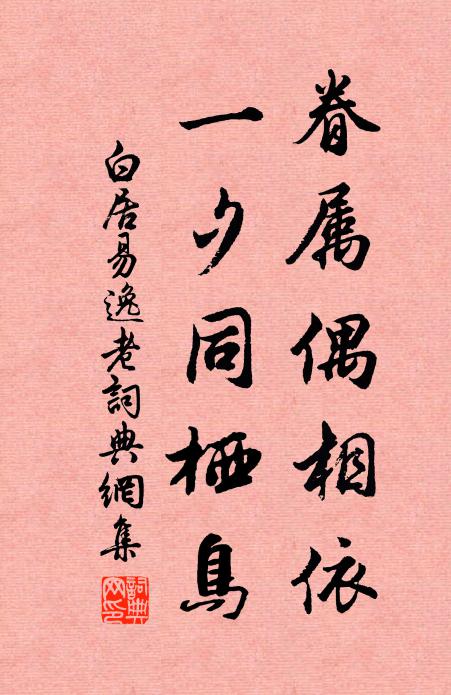 眷属偶相依
一夕同栖鳥
白居易逸老詞典網集
詞典網印